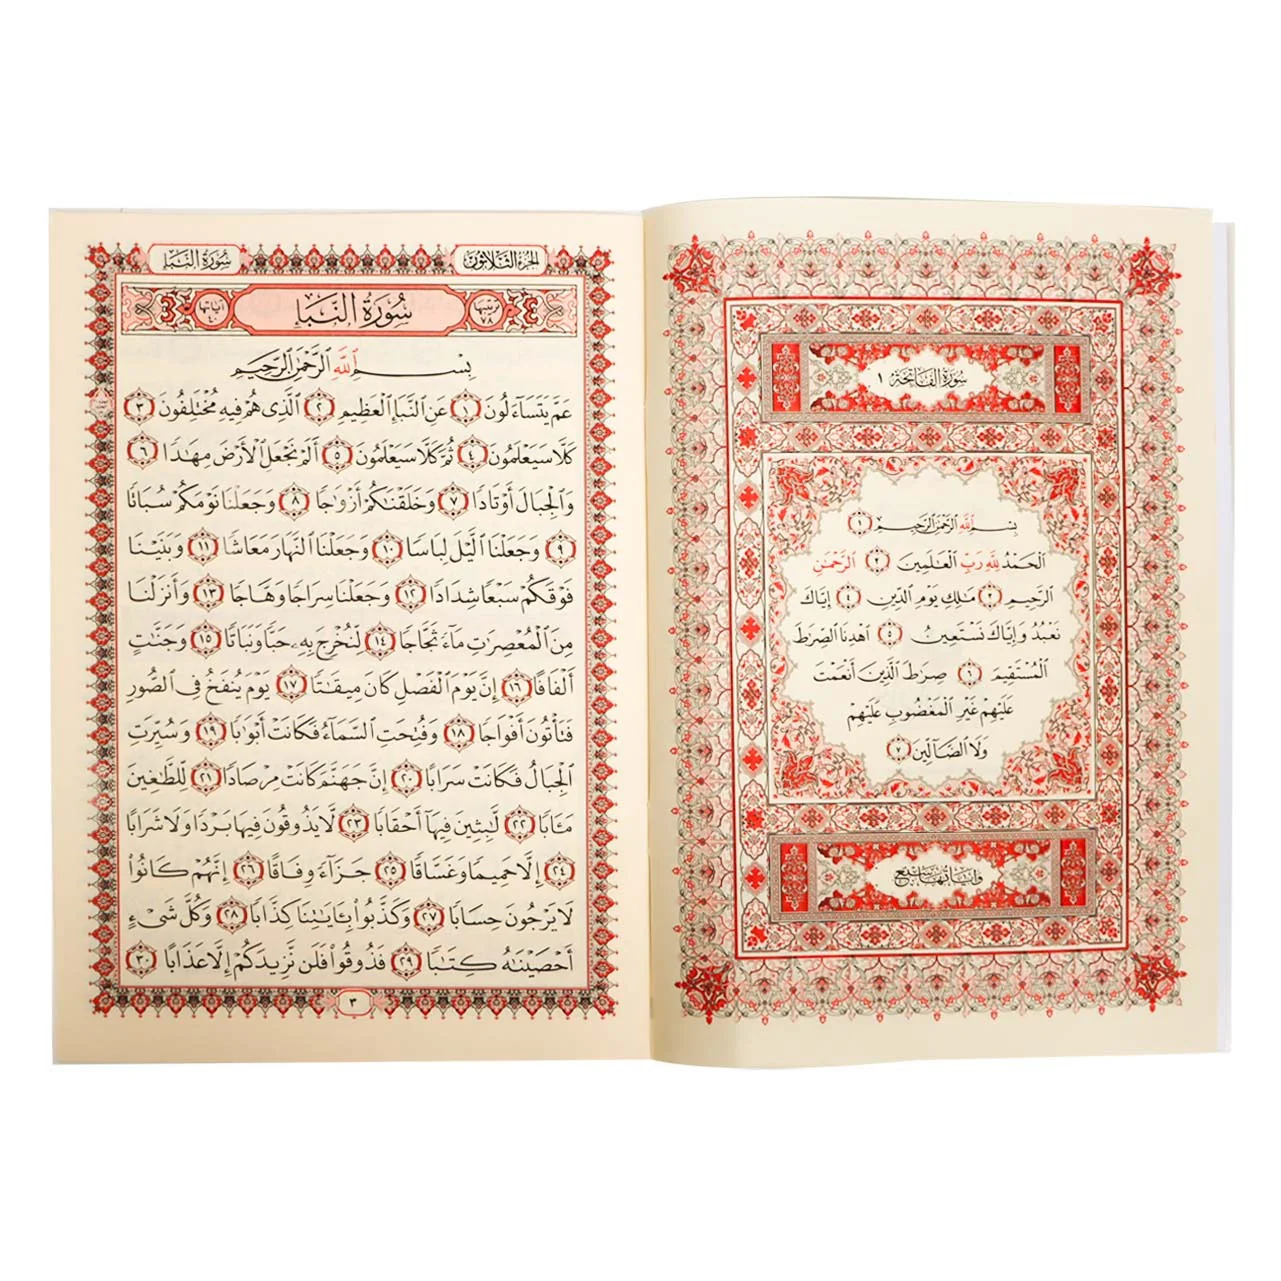 سُورَةُ الْفَاتِحَةِ ١
بِسْمِ ٱللَّهِ ٱلرَّحْمَٰنِ ٱلرَّحِيمِ ١
ٱلْحَمْدُ لِلَّهِ رَبِّ ٱلْعَٰلَمِينَ ٢ ٱلرَّحْمَٰنِ
ٱلرَّحِيمِ ٣ مَٰلِكِ يَوْمِ ٱلدِّينِ ٤ إِيَّاكَ
نَعْبُدُ وَإِيَّاكَ نَسْتَعِينُ ٥ ٱهْدِنَا ٱلصِّرَٰطَ
ٱلْمُسْتَقِيمَ ٦ صِرَٰطَ ٱلَّذِينَ أَنْعَمْتَ
عَلَيْهِمْ غَيْرِ ٱلْمَغْضُوبِ عَلَيْهِمْ
وَلَا ٱلضَّآلِّينَ ٧
وآياتها سبع
الجزء الثلاثون
سُورَةُ النَّبَإِ
ترتيبها ٧٨
سُورَةُ النَّبَإِ
آياتها ٤٠
بِسْمِ ٱللَّهِ ٱلرَّحْمَٰنِ ٱلرَّحِيمِ
عَمَّ يَتَسَآءَلُونَ ١ عَنِ ٱلنَّبَإِ ٱلْعَظِيمِ ٢ ٱلَّذِى هُمْ فِيهِ مُخْتَلِفُونَ ٣
كَلَّا سَيَعْلَمُونَ ٤ ثُمَّ كَلَّا سَيَعْلَمُونَ ٥ أَلَمْ نَجْعَلِ ٱلْأَرْضَ مِهَٰدًا ٦
وَٱلْجِبَالَ أَوْتَادًا ٧ وَخَلَقْنَٰكُمْ أَزْوَٰجًا ٨ وَجَعَلْنَا نَوْمَكُمْ سُبَاتًا
٩ وَجَعَلْنَا ٱلَّيْلَ لِبَاسًا ١٠ وَجَعَلْنَا ٱلنَّهَارَ مَعَاشًا ١١ وَبَنَيْنَا
فَوْقَكُمْ سَبْعًا شِدَادًا ١٢ وَجَعَلْنَا سِرَاجًا وَهَّاجًا ١٣ وَأَنزَلْنَا
مِنَ ٱلْمُعْصِرَٰتِ مَآءً ثَجَّاجًا ١٤ لِّنُخْرِجَ بِهِۦ حَبًّا وَنَبَاتًا ١٥ وَجَنَّٰتٍ
أَلْفَافًا ١٦ إِنَّ يَوْمَ ٱلْفَصْلِ كَانَ مِيقَٰتًا ١٧ يَوْمَ يُنفَخُ فِى ٱلصُّورِ
فَتَأْتُونَ أَفْوَاجًا ١٨ وَفُتِحَتِ ٱلسَّمَآءُ فَكَانَتْ أَبْوَٰبًا ١٩ وَسُيِّرَتِ
ٱلْجِبَالُ فَكَانَتْ سَرَابًا ٢٠ إِنَّ جَهَنَّمَ كَانَتْ مِرْصَادًا ٢١ لِّلطَّٰغِينَ
مَـَٔابًا ٢٢ لَّٰبِثِينَ فِيهَآ أَحْقَابًا ٢٣ لَّا يَذُوقُونَ فِيهَا بَرْدًا وَلَا شَرَابًا
٢٤ إِلَّا حَمِيمًا وَغَسَّاقًا ٢٥ جَزَآءً وِفَاقًا ٢٦ إِنَّهُمْ كَانُوا۟
لَا يَرْجُونَ حِسَابًا ٢٧ وَكَذَّبُوا۟ بِـَٔايَٰتِنَا كِذَّابًا ٢٨ وَكُلَّ شَىْءٍ
أَحْصَيْنَٰهُ كِتَٰبًا ٢٩ فَذُوقُوا۟ فَلَن نَّزِيدَكُمْ إِلَّا عَذَابًا ٣٠
٣